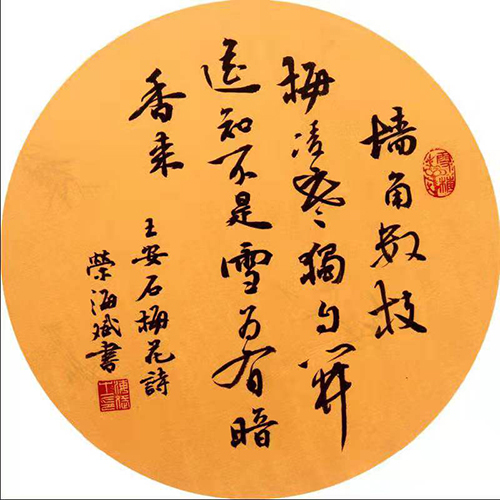 墙角数枝
梅凌寒獨自开
遥知不是雪为有暗
香来
王安石梅花詩
榮海斌書